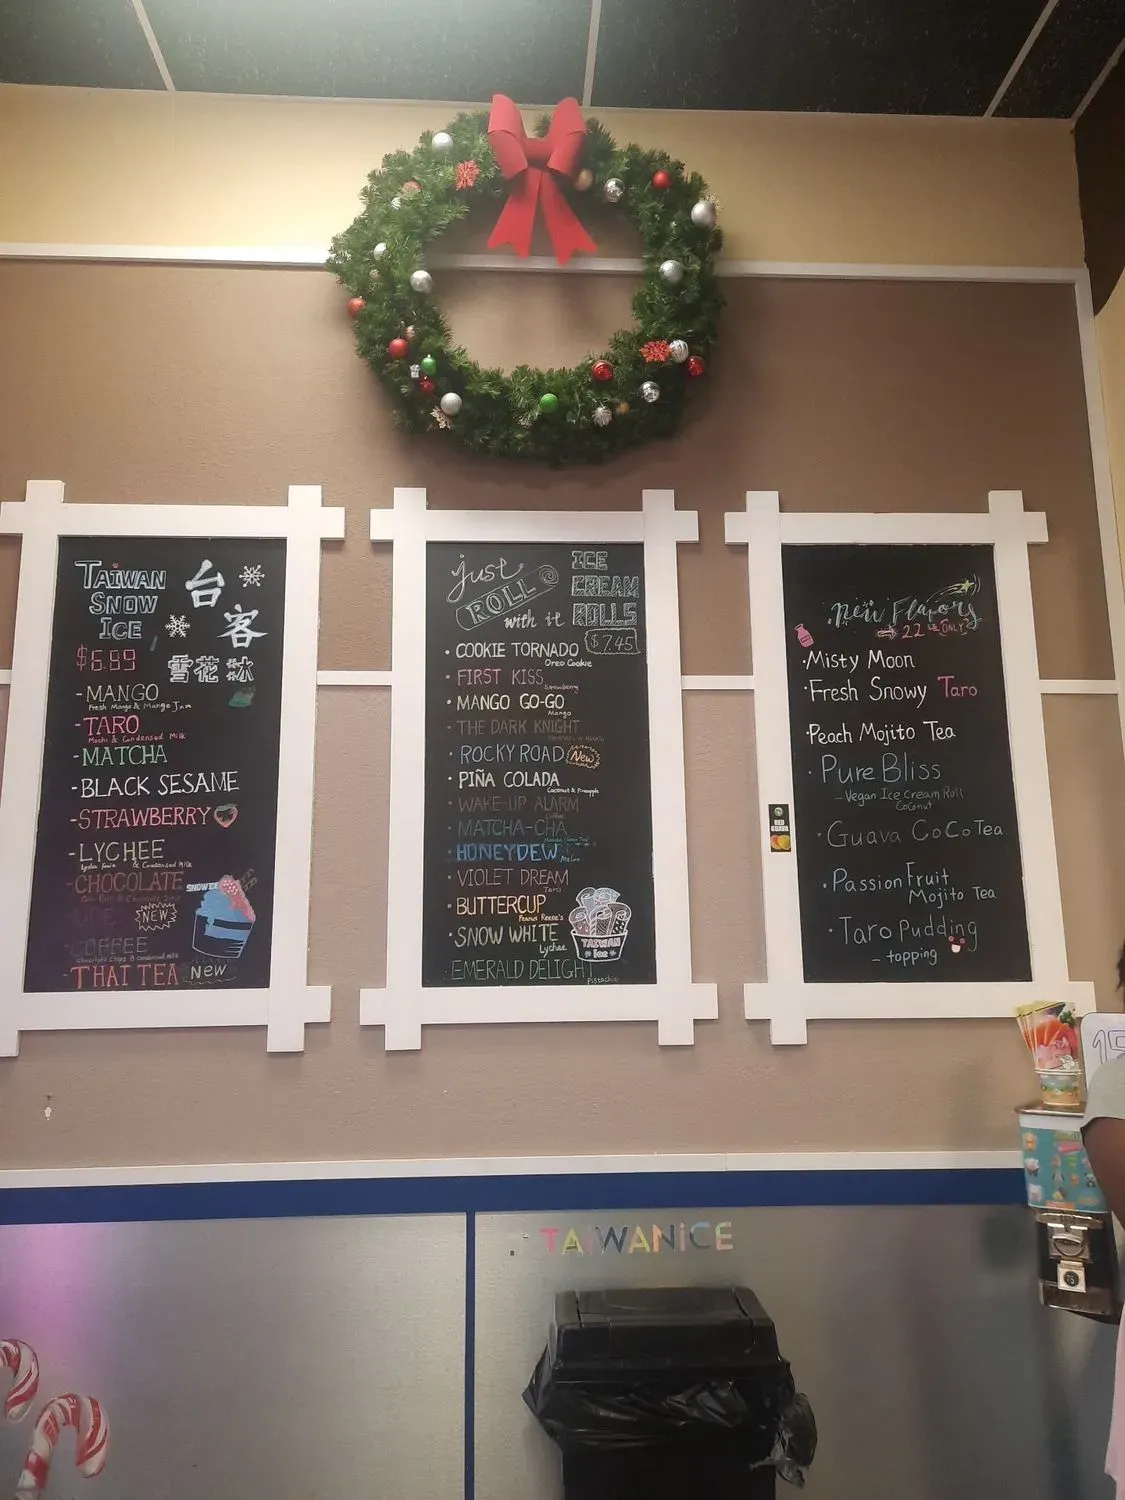 TAIWAN
SNOW
ICE
台
客
雪花冰
$6.89
-MANGO
Fresh Mango & Mango Jam
-TARO
Mochi & Condensed Milk
-MATCHA
-BLACK SESAME
-STRAWBERRY
-LYCHEE
& Condensed Milk
-CHOCOLATE
SNOW ICE
NEW
COFFEE
Chocolate Chips & Condensed Milk
-THAI TEA NEW
just
ROLL
with it
ICE
CREAM
ROLLS
$7.45
• COOKIE TORNADO
Oreo Cookie
• FIRST KISS
Strawberry
• MANGO GO-GO
Mango
• THE DARK KNIGHT
• ROCKY ROAD New
• PIÑA COLADA
Coconut & Pineapple
• WAKE-UP ALARM
Coffee
• MATCHA-CHA
• HONEYDEW
Melon
• VIOLET DREAM
Taro
• BUTTERCUP
Peanut Reese's
• SNOW WHITE
Lychee
TAIWAN
ice
• EMERALD DELIGHT
Pistachio
New Flavors
22 ONLY
• Misty Moon
• Fresh Snowy Taro
• Peach Mojito Tea
• Pure Bliss
- Vegan Ice Cream Roll
Coconut
• Guava CoCo Tea
• Passion Fruit
Mojito Tea
• Taro Pudding
- topping
RED
GUAVA
15
TAIWANiCE